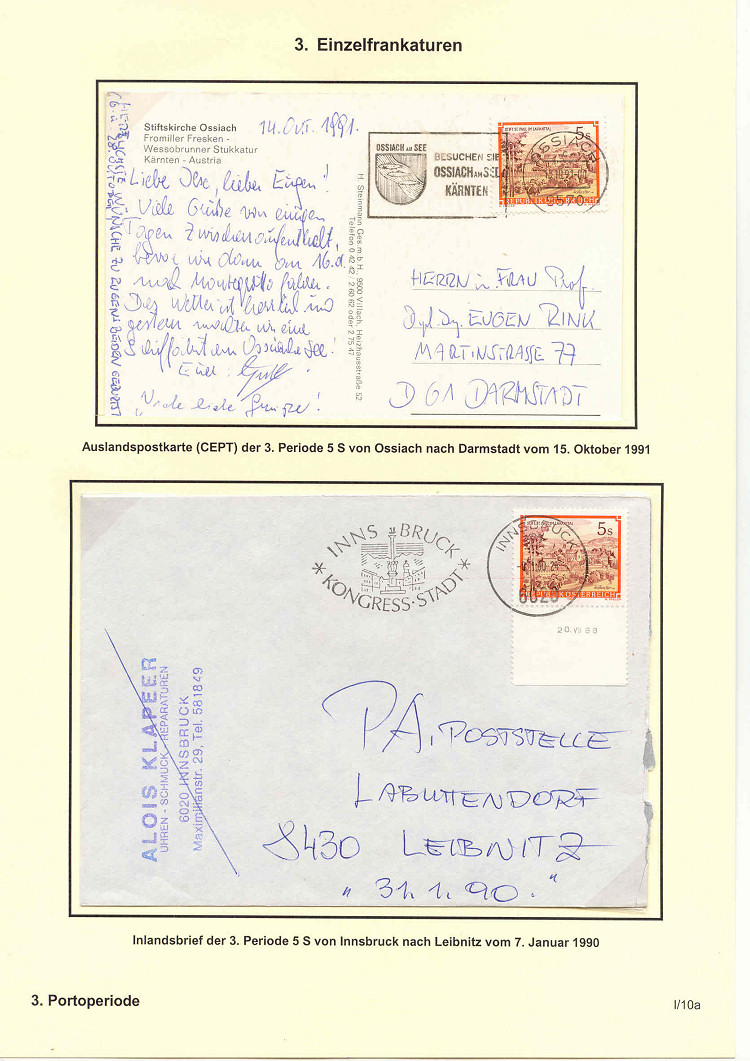 3. Einzelfrankaturen
Stiftskirche Ossiach
Fromiller Fresken -
Wessobrunner Stukkatur
Kärnten - Austria
14. Okt. 1991.
Liebe Ilse, lieber Eugen!
Viele Grüße von einigen
Tagen Zwischenaufenthalt,
bevor wir dann am 16.d.
nach Montegrotto fahren.
Das Wetter ist herrlich und
gestern machten wir eine
Schiffahrt am Ossiacher See!
Eure
"Viele liebe Grüße!
HERZLICHSTE WÜNSCHE ZU EUGENS BEIDEN GEBURTST
H. Steinmann Ges.m.b.H., 9500 Villach, Heizhausstraße 52
Telefon 0 42 42 / 2 60 62 oder 2 75 47
OSSIACH AM SEE
BESUCHEN SIE
OSSIACH AM SEE
KÄRNTEN
STIFT ST. PAUL IM LAVANTTAL
5s
REPUBLIK ÖSTERREICH
OSSIACH
9570
HERRN u. FRAU Prof.
Dipl. Ing. EUGEN RINK
MARTINSTRASSE 77
D 61 DARMSTADT
Auslandspostkarte (CEPT) der 3. Periode 5 S von Ossiach nach Darmstadt vom 15. Oktober 1991
INNSBRUCK
* KONGRESS·STADT *
INNSBRUCK
6020
5s
REPUBLIK ÖSTERREICH
20. VII 88
ALOIS KLAPEER
UHREN - SCHMUCK - REPARATUREN
6020 INNSBRUCK
Maximilianstr. 29, Tel. 581849
PA, POSTSTELLE
LABUTTENDORF
8430 LEIBNITZ
"31.1.90."
Inlandsbrief der 3. Periode 5 S von Innsbruck nach Leibnitz vom 7. Januar 1990
3. Portoperiode
I/10a